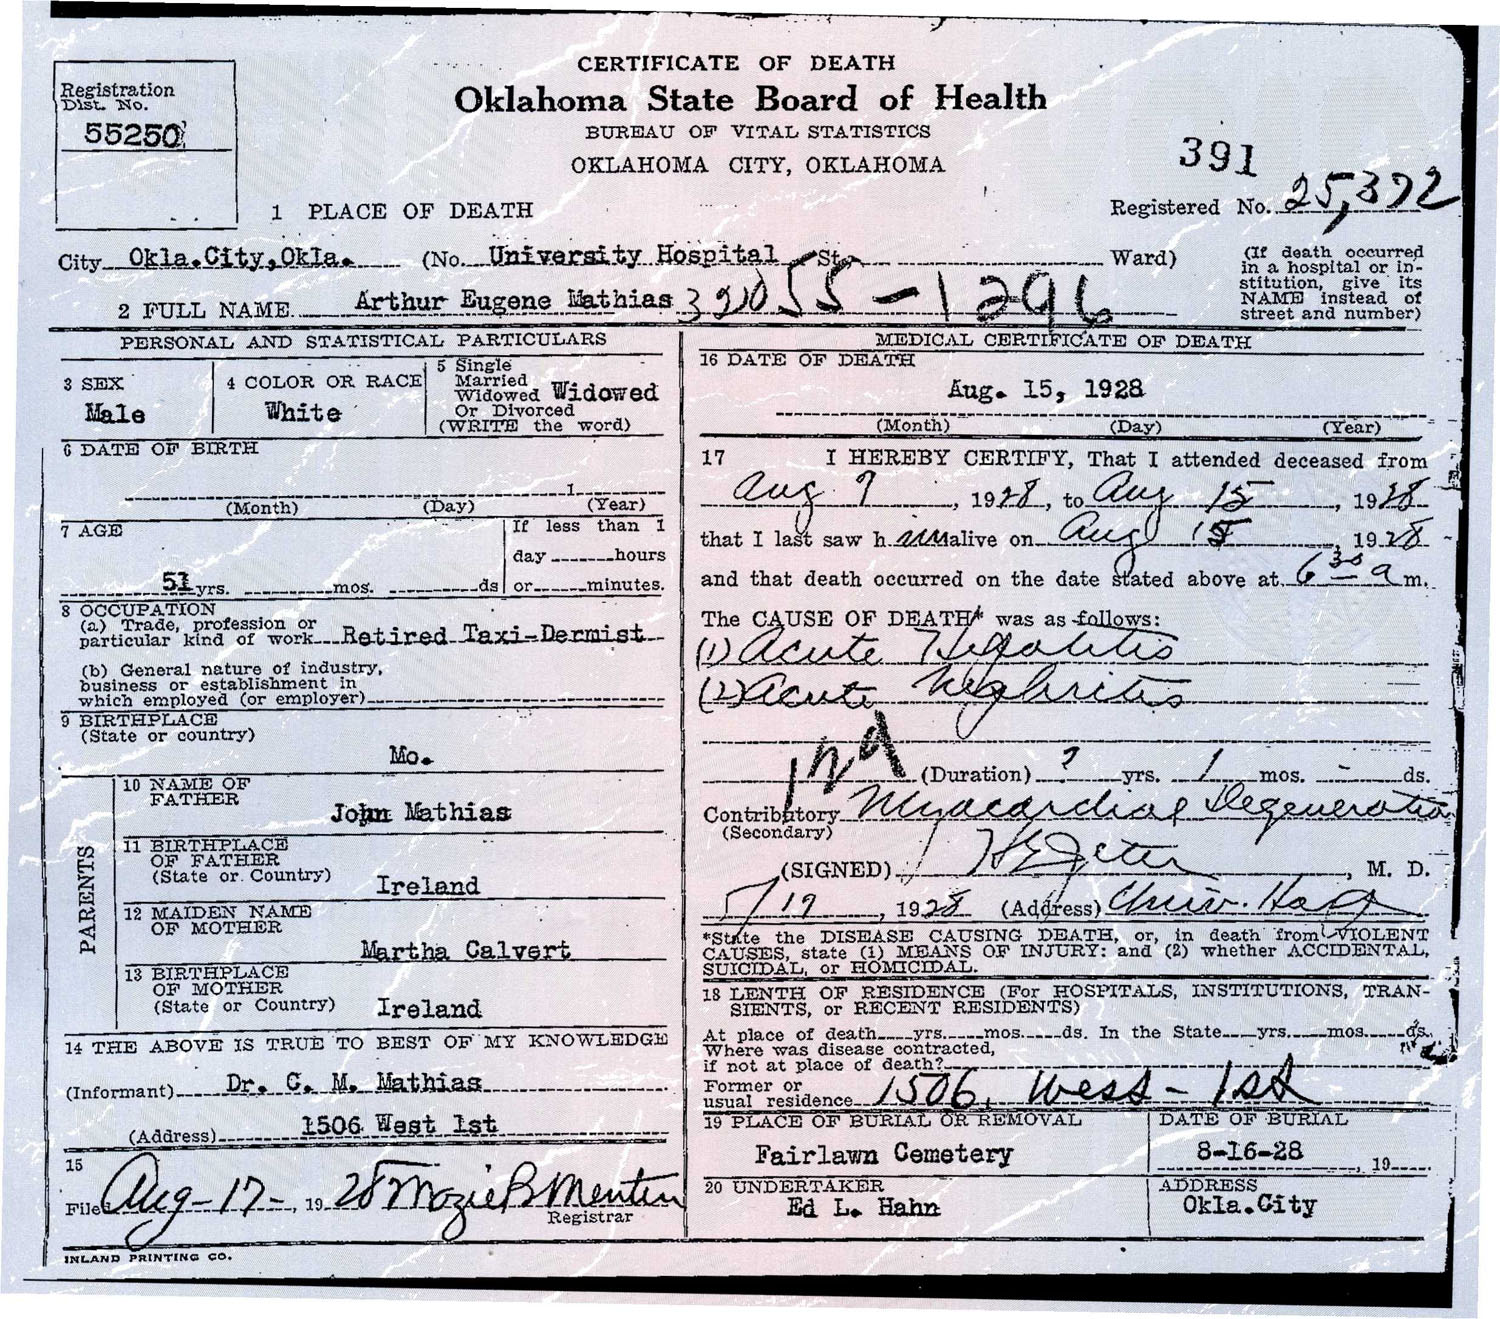 CERTIFICATE OF DEATH
Oklahoma State Board of Health
BUREAU OF VITAL STATISTICS
OKLAHOMA CITY, OKLAHOMA
Registration
Dist. No.
55250
391
Registered No. 25,372
1 PLACE OF DEATH
City Okla.City,Okla. (No. University Hospital St. Ward)
(If death occurred
in a hospital or in-
stitution, give its
NAME instead of
street and number)
2 FULL NAME Arthur Eugene Mathias 32055-1296
PERSONAL AND STATISTICAL PARTICULARS
3 SEX
Male
4 COLOR OR RACE
White
5 Single
Married
Widowed Widowed
Or Divorced
(WRITE the word)
6 DATE OF BIRTH
1
(Month) (Day) (Year)
7 AGE
If less than 1
day hours
51 yrs. mos. ds or minutes.
8 OCCUPATION
(a) Trade, profession or
particular kind of work Retired Taxi-Dermist
(b) General nature of industry,
business or establishment in
which employed (or employer)
9 BIRTHPLACE
(State or country)
Mo.
PARENTS
10 NAME OF
FATHER
John Mathias
11 BIRTHPLACE
OF FATHER
(State or Country) Ireland
12 MAIDEN NAME
OF MOTHER
Martha Calvert
13 BIRTHPLACE
OF MOTHER
(State or Country) Ireland
14 THE ABOVE IS TRUE TO BEST OF MY KNOWLEDGE
(Informant) Dr. C. M. Mathias
(Address) 1506 West 1st
15
Filed Aug-17-, 1928 Mozie B Menten
Registrar
INLAND PRINTING CO.
MEDICAL CERTIFICATE OF DEATH
16 DATE OF DEATH
Aug. 15, 1928
(Month) (Day) (Year)
17 I HEREBY CERTIFY, That I attended deceased from
Aug 9, 1928, to Aug 15, 1928
that I last saw h im alive on Aug 15, 1928
and that death occurred on the date stated above at 6 30 a m.
The CAUSE OF DEATH* was as follows:
(1) Acute Hepatitis
(2) Acute Nephritis
(Duration) ? yrs. 1 mos. - ds.
Contributory Myocardial Degeneration
(Secondary)
(SIGNED) H E Jeter, M. D.
, 1928 (Address) Univ. Hosp
*State the DISEASE CAUSING DEATH, or, in death from VIOLENT
CAUSES, state (1) MEANS OF INJURY: and (2) whether ACCIDENTAL,
SUICIDAL, or HOMICIDAL.
18 LENTH OF RESIDENCE (For HOSPITALS, INSTITUTIONS, TRAN-
SIENTS, or RECENT RESIDENTS)
At place of death yrs. mos. ds. In the State yrs. mos. ds.
Where was disease contracted,
if not at place of death?
Former or
usual residence 1506, West - 1st
19 PLACE OF BURIAL OR REMOVAL
Fairlawn Cemetery
DATE OF BURIAL
8-16-28
19
20 UNDERTAKER
Ed L. Hahn
ADDRESS
Okla.City